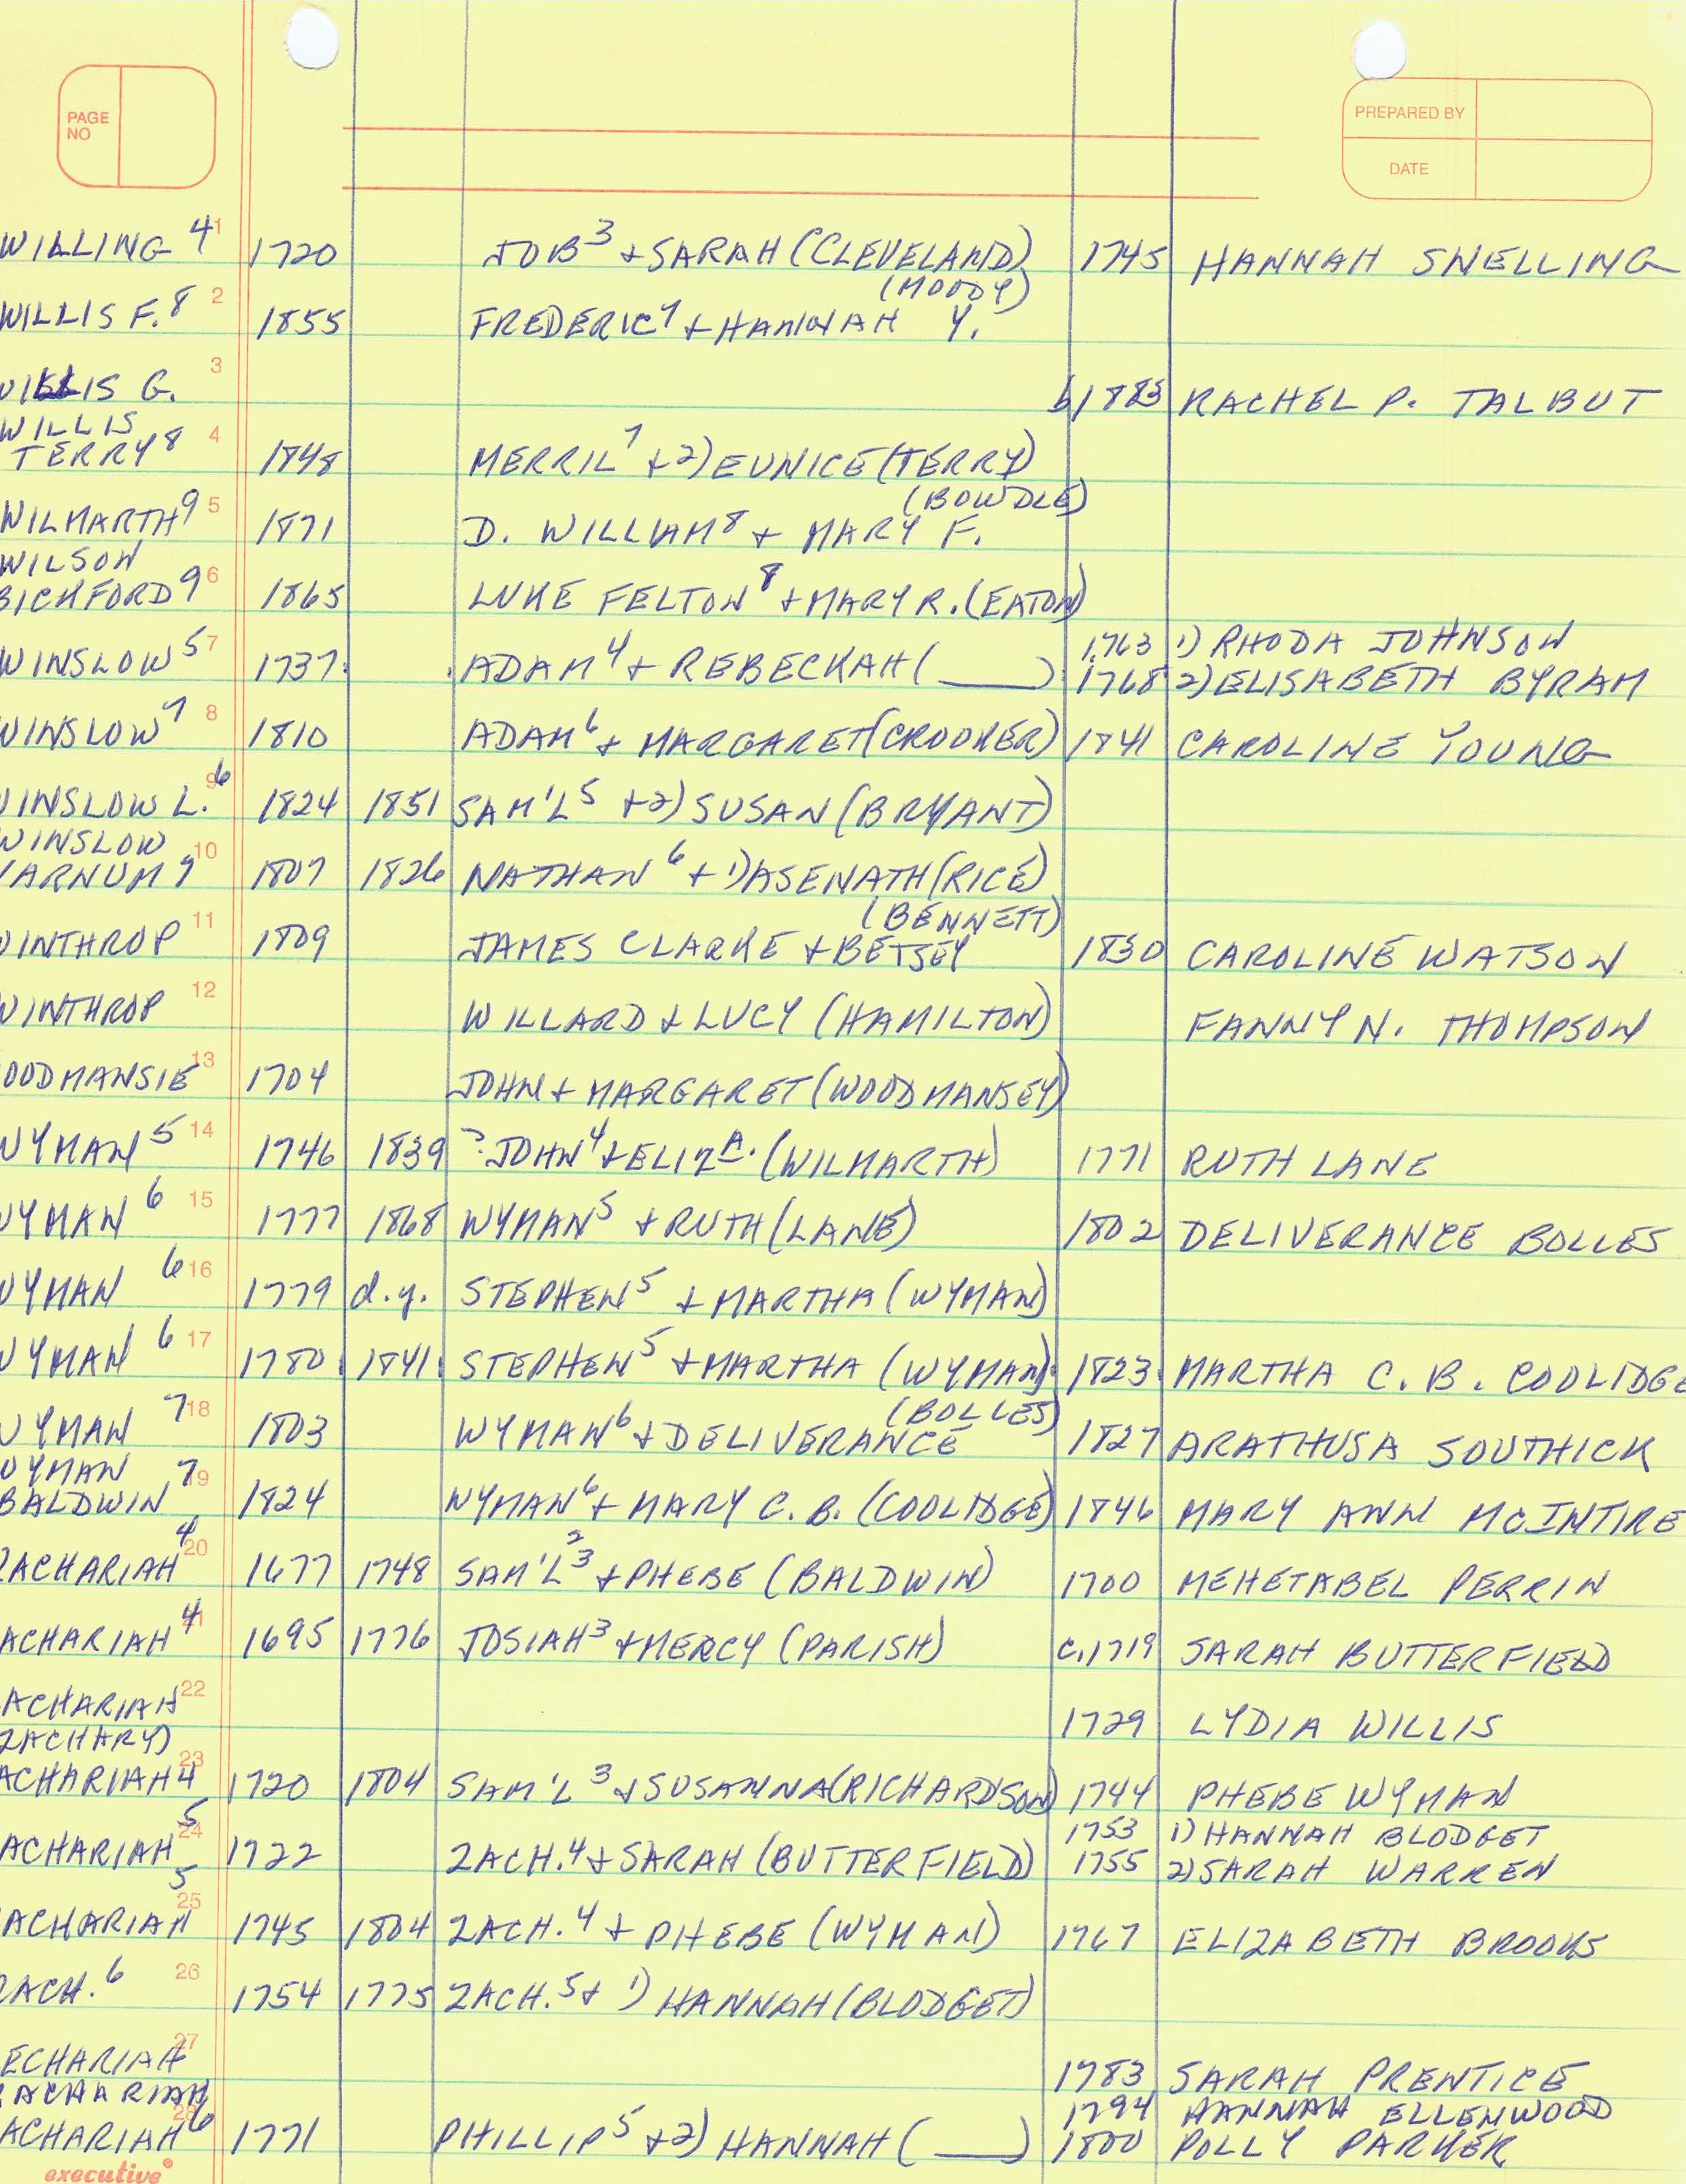 PAGE NO
PREPARED BY
DATE
WILLING 4 1 1720 JOB 3 + SARAH (CLEVELAND) 1745 HANNAH SNELLING
(MOODY)
WILLIS F. 8 2 1855 FREDERIC 7 + HANNAH Y.
WILLIS G. 3 RACHEL P. TALBUT
WILLIS
TERRY 8 4 1848 MERRIL 7 + 2) EUNICE (TERRY)
(BOWDLE)
WILMARTH 9 5 1871 D. WILLIAM 8 + MARY F.
WILSON
BICKFORD 9 6 1865 LUKE FELTON 8 + MARY R. (EATON)
1763 1) RHODA JOHNSON
WINSLOW 5 7 1737 ADAM 4 + REBECKAH ( ___ ) 1768 2) ELISABETH BYRAM
WINSLOW 7 8 1810 ADAM 6 + MARGARET (CROOKER) 1841 CAROLINE YOUNG
WINSLOW L. 6 9 1824 1851 SAM'L 5 + 2) SUSAN (BRYANT)
WINSLOW
VARNUM 7 10 1807 1826 NATHAN 6 + 1) ASENATH (RICE)
(BENNETT)
WINTHROP 11 1809 JAMES CLARKE + BETSEY 1830 CAROLINE WATSON
WINTHROP 12 WILLARD + LUCY (HAMILTON) FANNY N. THOMPSON
WOODMANSIE 13 1704 JOHN + MARGARET (WOODMANSEY)
WYMAN 5 14 1746 1839 ? JOHN 4 + ELIZ A. (WILMARTH) 1771 RUTH LANE
WYMAN 6 15 1777 1868 WYMAN 5 + RUTH (LANE) 1802 DELIVERANCE BOLLES
WYMAN 6 16 1779 d.y. STEPHEN 5 + MARTHA (WYMAN)
WYMAN 6 17 1780 1841 STEPHEN 5 + MARTHA (WYMAN) 1823 MARTHA C. B. COOLIDGE
(BOLLES)
WYMAN 7 18 1803 WYMAN 6 + DELIVERANCE 1827 ARATHUSA SOUTHICK
WYMAN
BALDWIN 7 19 1824 WYMAN 6 + MARY C. B. (COOLIDGE) 1846 MARY ANN MCINTIRE
ZACHARIAH 4 20 1677 1748 SAM'L 2 3 + PHEBE (BALDWIN) 1700 MEHETABEL PERRIN
ZACHARIAH 4 21 1695 1776 JOSIAH 3 + MERCY (PARISH) c.1719 SARAH BUTTERFIELD
ZACHARIAH 22
(ZACHARY) 1729 LYDIA WILLIS
ZACHARIAH 4 23 1720 1804 SAM'L 3 + SUSANNA (RICHARDSON) 1744 PHEBE WYMAN
1753 1) HANNAH BLODGET
ZACHARIAH 5 24 1722 ZACH. 4 + SARAH (BUTTERFIELD) 1755 2) SARAH WARREN
ZACHARIAH 5 25 1745 1804 ZACH. 4 + PHEBE (WYMAN) 1767 ELIZABETH BROOKS
ZACH. 6 26 1754 1775 ZACH. 5 + 1) HANNAH (BLODGET)
ZECHARIAH 27 1783 SARAH PRENTICE
ZACHARIAH 1794 HANNAH ELLENWOOD
ZACHARIAH 6 28 1771 PHILLIP 5 + 2) HANNAH ( ___ ) 1800 POLLY PARKER
executive®